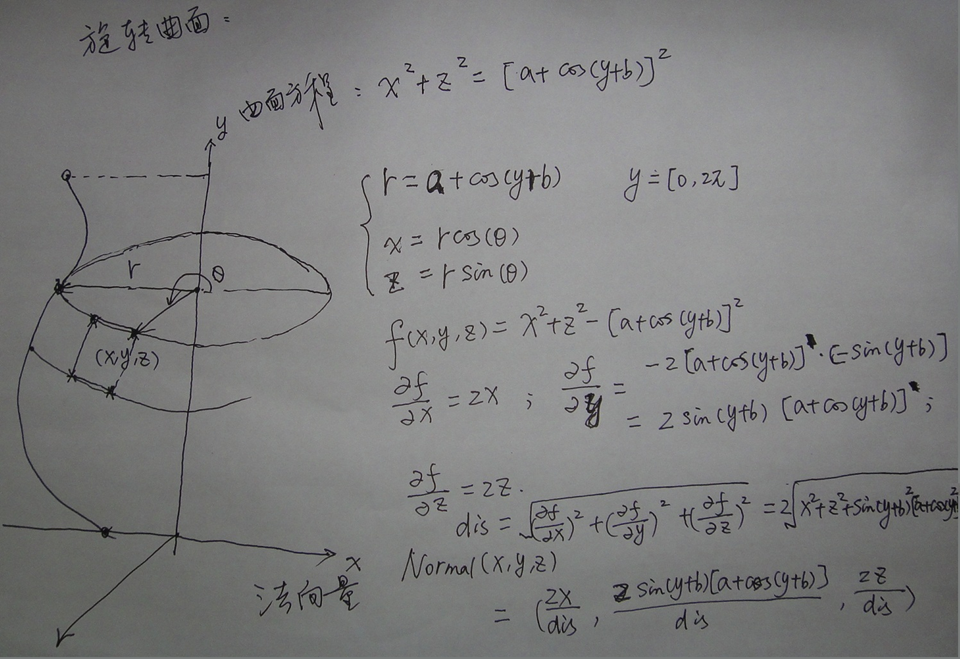 旋转曲面：
曲面方程：x²+z²=[a+cos(y+b)]²
y
r=a+cos(y+b) y=[0,2π]
x=rcos(θ)
z=rsin(θ)
r θ
(x,y,z)
f(x,y,z)=x²+z²-[a+cos(y+b)]²
∂f/∂x=2x ; ∂f/∂y=-2[a+cos(y+b)]·[-sin(y+b)]
=2sin(y+b)[a+cos(y+b)];
∂f/∂z=2z.
dis=√((∂f/∂x)²+(∂f/∂y)²+(∂f/∂z)²)=2√(x²+z²+sin(y+b)²[a+cos(y+b)]²
x
法向量 Normal(x,y,z)
=(2x/dis, 2sin(y+b)[a+cos(y+b)]/dis, 2z/dis)